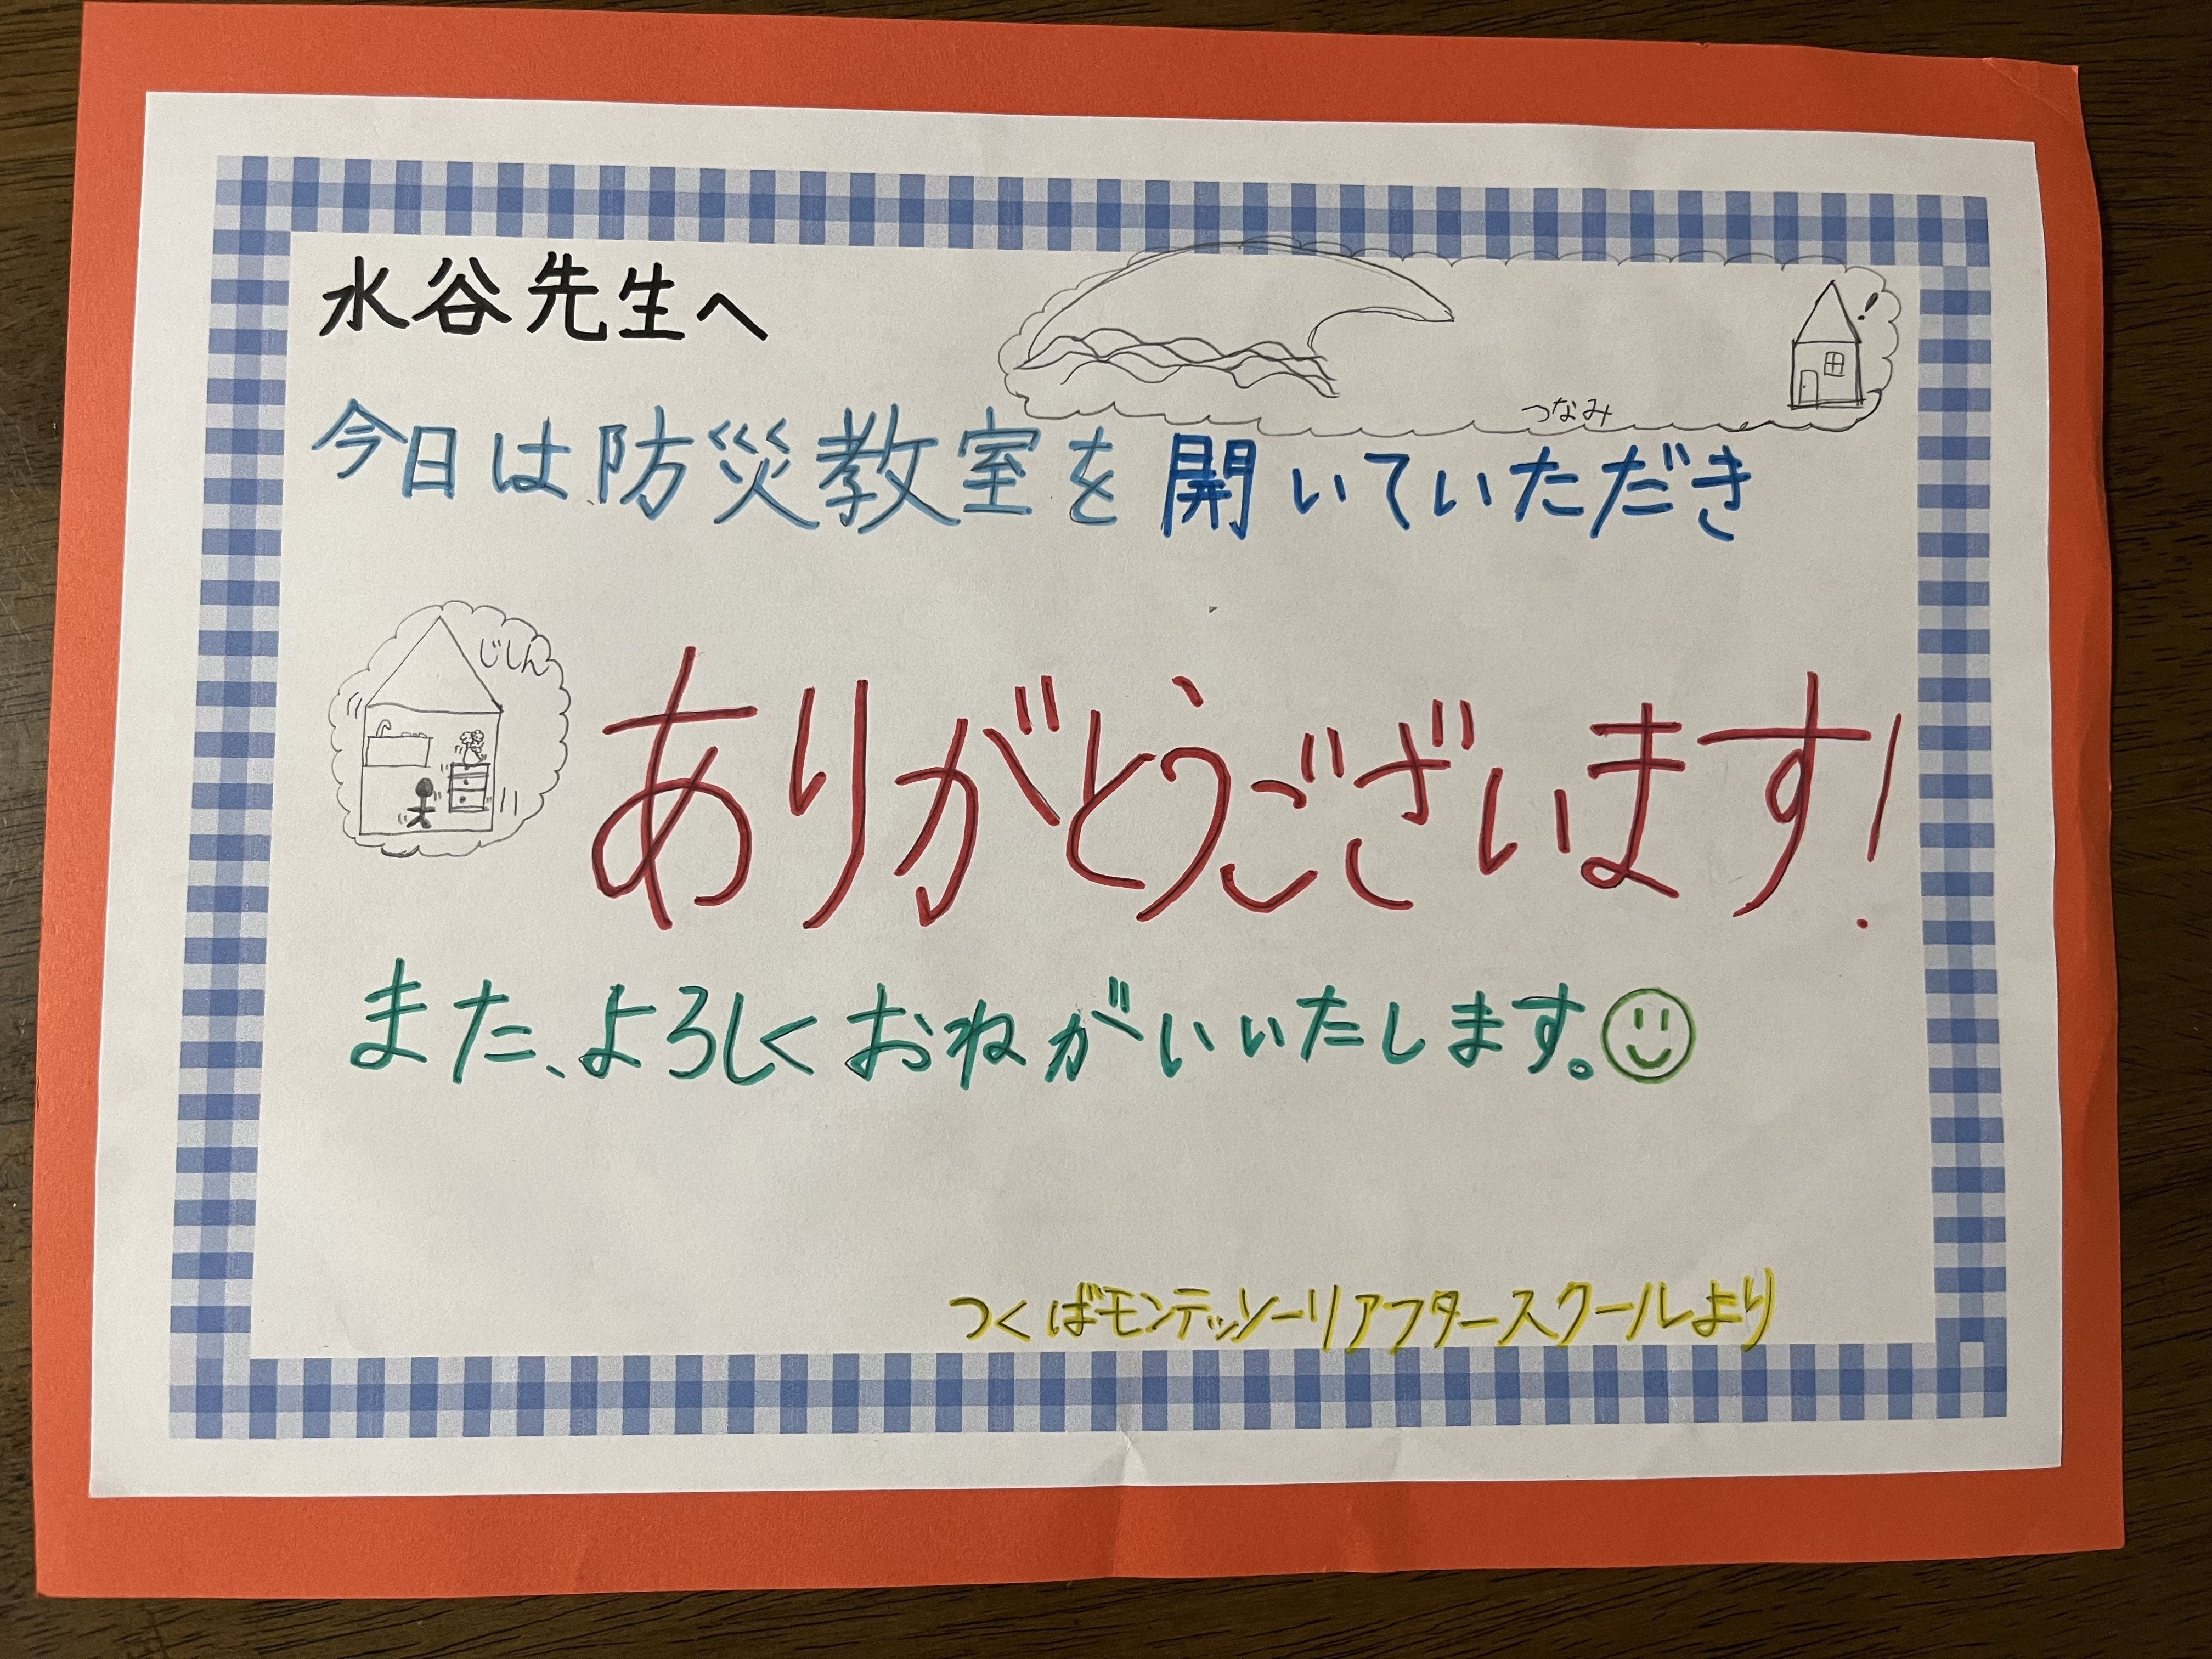 水谷先生へ
つなみ
今日は防災教室を開いていただき
じしん
ありがとうございます!
また、よろしくおねがいいたします。
つくばモンテッソーリアフタースクールより